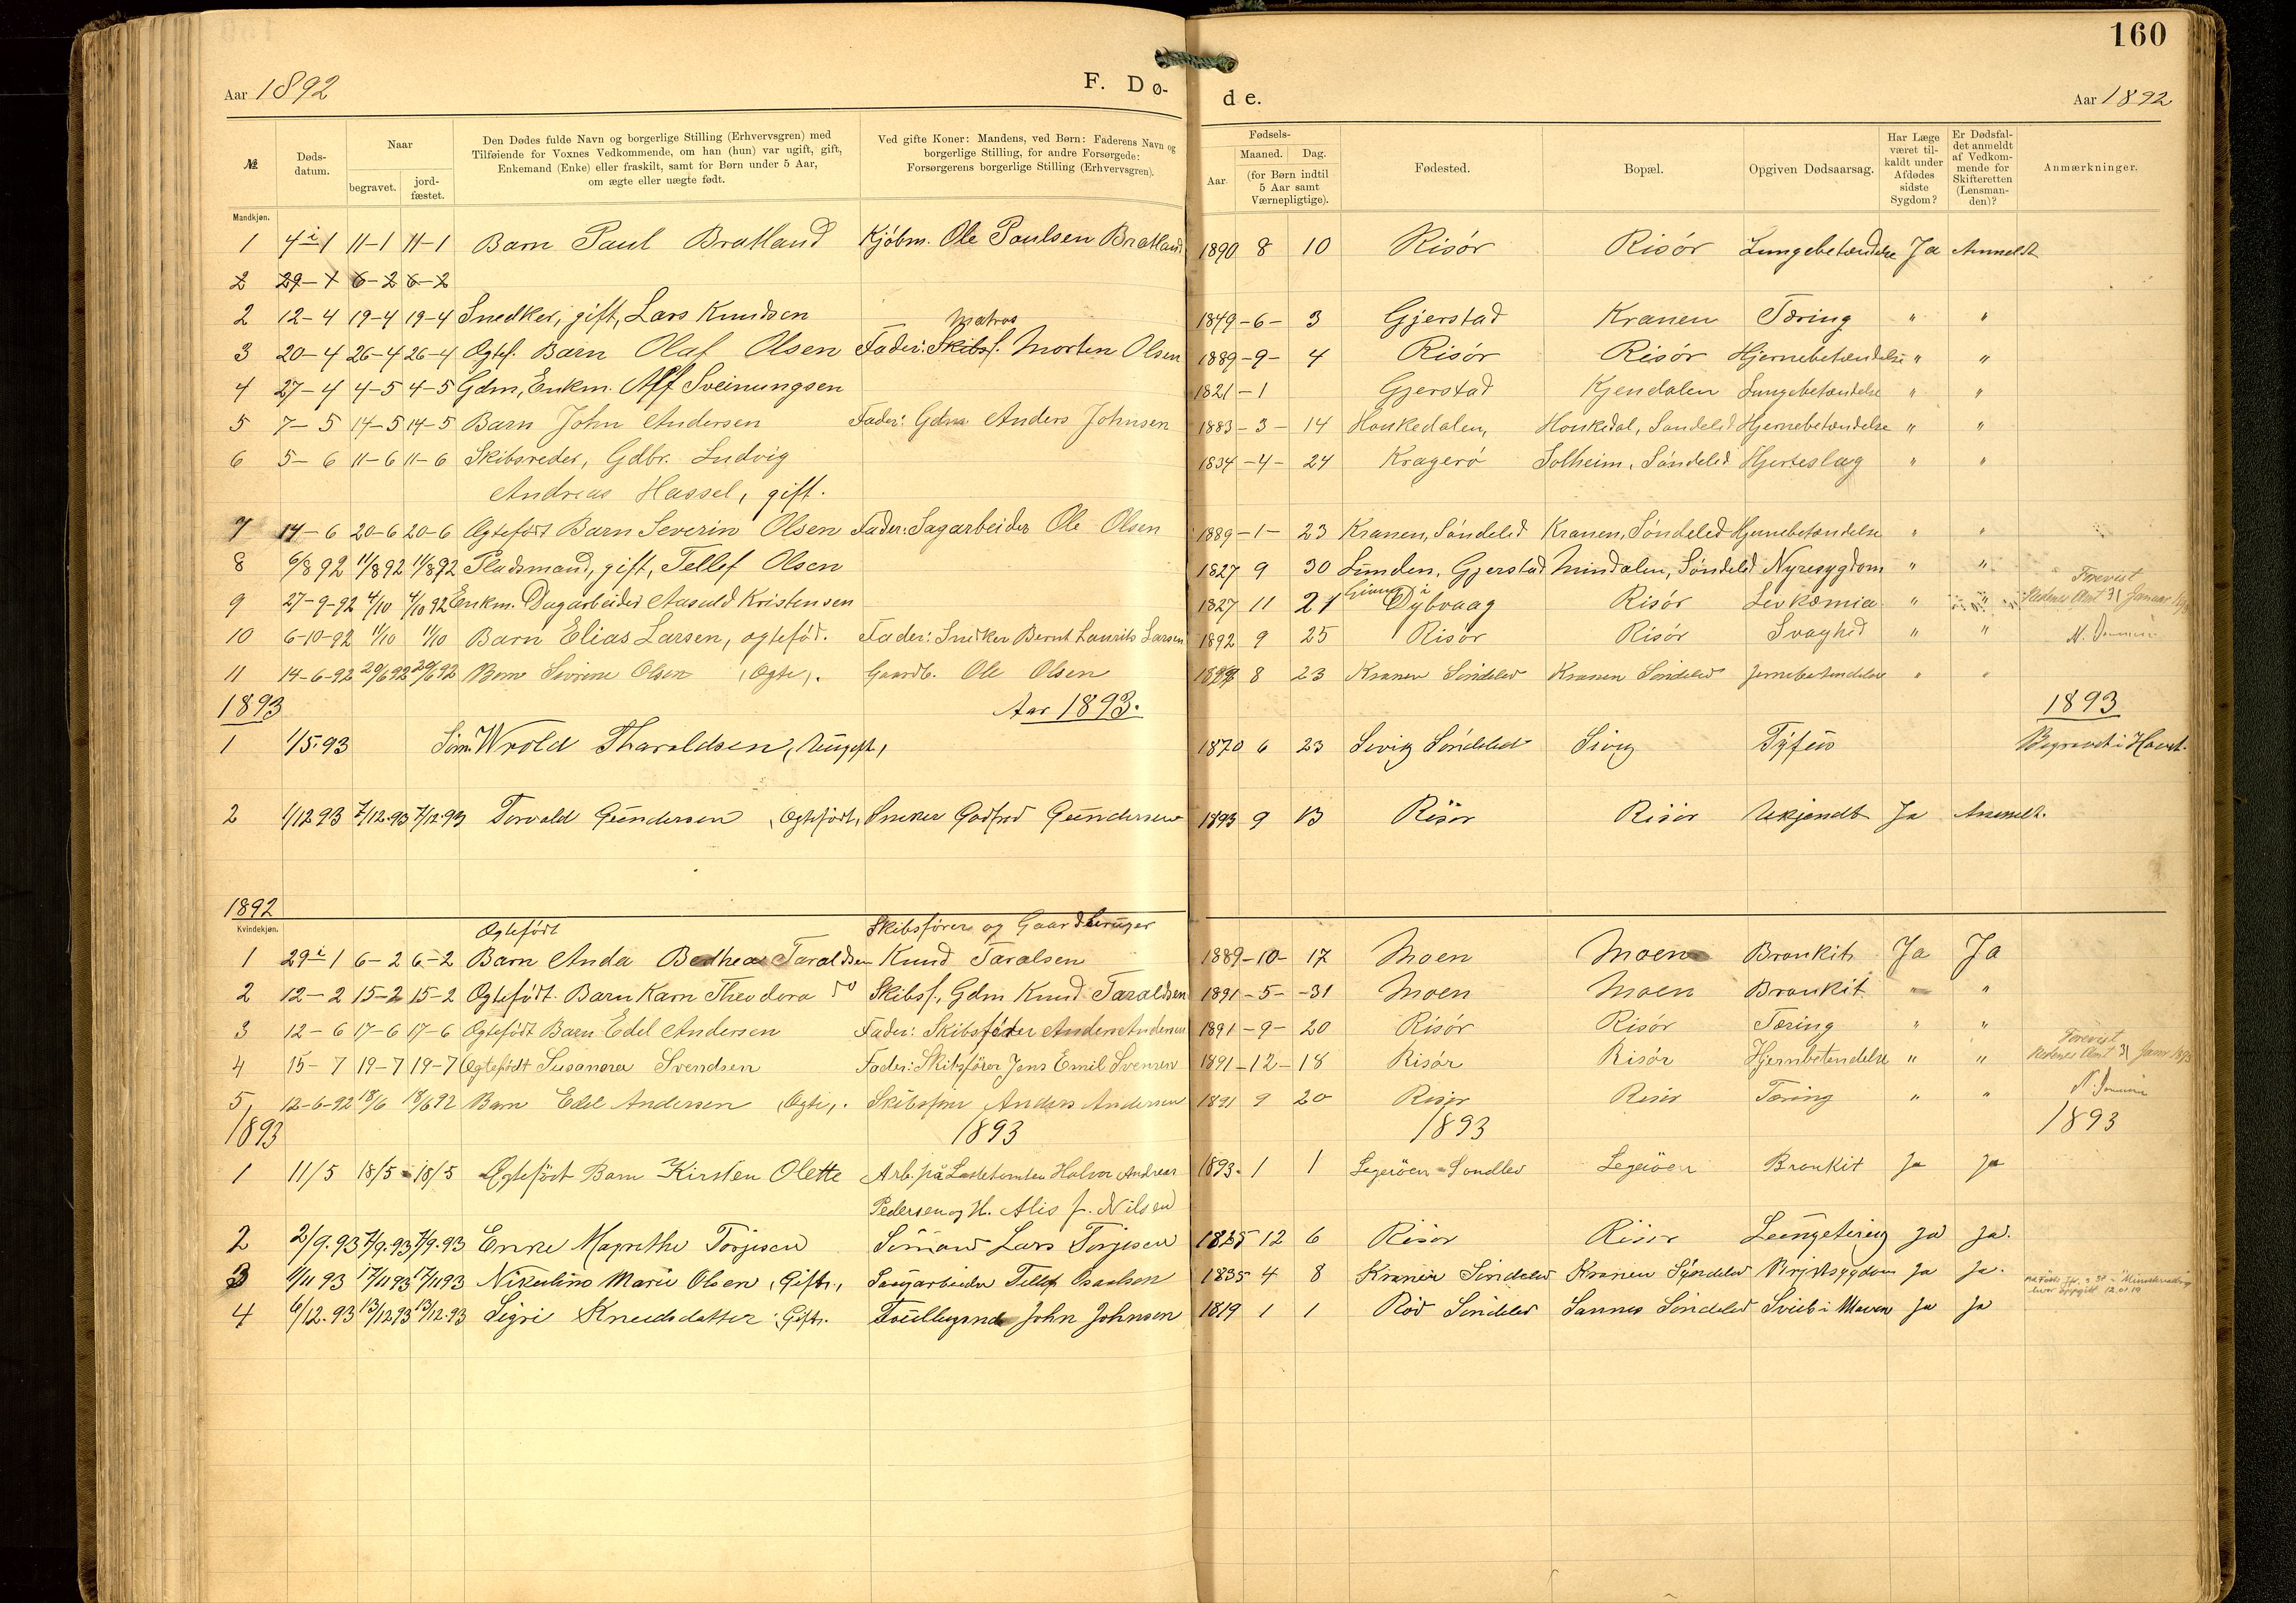 160
Aar 1892 F. Dø-
de. Aar 1892
№ Døds-datum. Naar begravet. jord-fæstet. Den Dødes fulde Navn og borgerlige Stilling (Erhvervsgren) med Tilføiende for Voxnes Vedkommende, om han (hun) var ugift, gift, Enkemand (Enke) eller fraskilt, samt for Børn under 5 Aar, om ægte eller uægte født. Ved gifte Koner: Mandens, ved Børn: Faderens Navn og borgerlige Stilling, for andre Forsørgede: Forsørgerens borgerlige Stilling (Erhvervsgren). Fødsels- Aar. Maaned. Dag. (for Børn indtil 5 Aar samt Værnepligtige). Fødested. Bopæl. Opgiven Dødsaarsag. Har Læge været til-kaldt under Afdødes sidste Sygdom? Er Dødsfal-det anmeldt af Vedkom-mende for Skifteretten (Lensman-den)? Anmærkninger.
Mandkjøn.
1 4-1 11-1 11-1 Barn Paul Bratland Kjöbm. Ole Paulsen Bratland 1890 8 10 Risör Risör Lungebetændelse Ja Anmeldt
2 29-1 6-2 6-2
2 12-4 19-4 19-4 Snedker, gift, Lars Knudsen 1849-6-3 Gjerstad Kranen Tæring " "
Matros
3 20-4 26-4 26-4 Ogtef. Barn Olaf Olsen Fader: Skibsf. Morten Olsen 1889-9-4 Risör Risör Hjernebetændelse " "
4 27-4 4-5 4-5 Gdm, Enkm. Alf Sveinungsen 1821-1 Gjerstad Kjendalen Lungebetændelse " "
5 7-5 14-5 14-5 Barn John Andersen Fader: Gdm Anders Johnsen 1883-3-14 Houkedalen, Houkedal, Søndeled Hjernebetændelse " "
6 5-6 11-6 11-6 Skibsreder, Gdbr. Ludvig 1834-4-24 Kragerö Solheim, Söndeled Hjerteslag " "
Andreas Hassel, gift.
7 14-6 20-6 20-6 Ogtefödt Barn Severin Olsen Fader: Sagarbeider Ole Olsen 1889-1-23 Kranen, Söndeled Kranen, Söndeled Hjernebetændelse " "
8 6/8 92 11/8 92 11/8 92 Pladsmand, gift, Tellef Olsen 1827 9 30 Lunden, Gjerstad Mindalen, Söndeled Nyresygdom " "
9 27-9-92 4/10 4/10 92 Enkm. Dagarbeider Aasuld Kristensen 1827 11 21 i Dybvaag Risör Levkæmia " " Forevist Nedenes Amt 31 Januar
10 6-10-92 11/10 11/10 Barn Elias Larsen, ogteföd. Fader: Snedker Bernt Laurits Larsen 1892 9 25 Risör Risör Svaghed " "
11 14-6-92 20/6 92 20/6 92 Barn Sivrine Olsen (Ogte). Gaardb. Ole Olsen 8 23 Kranen Sindeled Kranen Sindeled Jernebetendelse " "
1893 Aar 1893. 1893
1 1/5.93 Söm. Wrold Tharaldsen, (Uugift) 1870 6 23 Sevig Söndeled Sivig Tyfus Begravet i Havet.
2 1/12 93 7/12.93 7/12.93 Torvald Gundersen (Ogtefödt) Sneker Godfred Gundersen 1893 9 13 Risör Risör Ukjendt Ja Anmeldt.
1892
Kvindekjøn.
Ogtefödt Skibsförer og Gaardbruger
1 29-1 6-2 6-2 Barn Anda Bethea Taraldsen Knud Taralsen 1889-10-17 Moen Moen Bronkit Ja Ja
2 12-2 15-2 15-2 Ogtefödt Barn Karn Theodora do Skibsf., Gdm Knud Taraldsen 1891-5-31 Moen Moen Bronkit " "
3 12-6 17-6 17-6 Ogtefödt Barn Edel Andersen Fader: Skibsförer Anders Andersen 1891-9-20 Risör Risör Tæring " "
4 15-7 19-7 19-7 Ogtefödt Susanna Svendsen Fader: Skibsförer Jens Emil Svensen 1891-12-18 Risör Risör Hjernbetendelse " " Forevist Nedenes Amt 31 Janr 1893
5, 12-6-92 18/6 18/6 92 Barn Edel Andersen (Ogte). Skibsförer Anders Andersen 1891 9 20 Risör Risör Tæring " "
1893 1893 1893 1893
1 11/5 18/5 18/5 Ogtefödt Barn Kirsten Olette Arb. på Lastetomten Halvor Andreas 1893-1 1 Legeröen Sondled Legeröen Bronkit Ja Ja
Pedersen og H. Alis f. Nilsen
2 2/9.93 7/9.93 7/9.93 Enke Magrethe Torjesen Sömand Lars Torjesen 1825 12 6 Risör Risör Lungetering Ja Ja.
3 11/11 93 17/11 93 17/11 93 Nikoline Marie Olsen (Gift), Saugarbeider Tellef Osaulsen 1835 4 8 Kranen Sindeled Kranen Söndeled Brystsygdom Ja Ja.
4 6/12.93 13/12 93 13/12.93 Sigri Knudsdatter (Gift). John Johnsen 1819 1 1 Röd Sindeled Sannes Söndeled Svieb i Maven Ja Ja